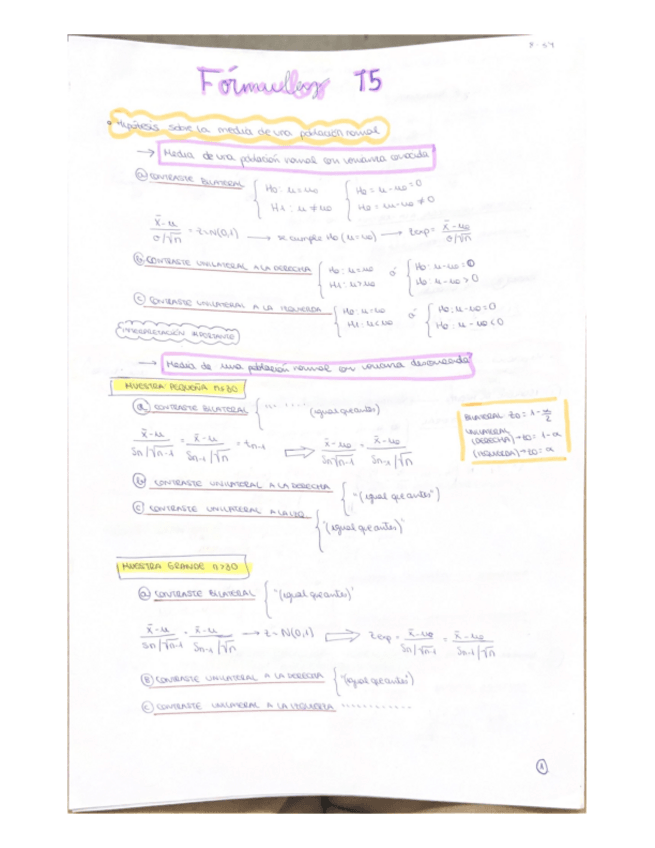 Fórmulas T5
• Hipótesis sobre la media de una población normal
→ Media de una población normal con varianza conocida
ⓐ CONTRASTE BILATERAL { H0: u=u0 { H0 = u-u0=0
H1: u≠u0 H0 = u-u0≠0
x̄-u / σ/√n = Z≈N(0,1) → se cumple H0 (u=u0) → Zexp= x̄-u0 / σ/√n
ⓑ CONTRASTE UNILATERAL A LA DERECHA { H0: u=u0 ó { H0: u-u0=0
H1: u>u0 H0: u-u0>0
ⓒ CONTRASTE UNILATERAL A LA IZQUIERDA { H0: u=u0 ó { H0: u-u0=0
H1: u<u0 H0: u-u0<0
INTERPRETACIÓN IMPORTANTE
→ Media de una población normal con varianza desconocida
MUESTRA PEQUEÑA n>30
ⓐ CONTRASTE BILATERAL { (igual que antes)
x̄-u / Sn/√n-1 = x̄-u / Sn-1/√n = tn-1 ⇒ x̄-u0 / Sn/√n-1 = x̄-u0 / Sn-1/√n
BILATERAL: t0 = 1-α/2
UNILATERAL
(DERECHA)→t0= 1-α
(IZQUIERDA)→t0= α
ⓑ CONTRASTE UNILATERAL A LA DERECHA { "(igual que antes")
ⓒ CONTRASTE UNILATERAL A LA IZQ { "(igual que antes)"
MUESTRA GRANDE n>30
ⓐ CONTRASTE BILATERAL { "(igual que antes)"
x̄-u / Sn/√n-1 = x̄-u / Sn-1/√n → Z≈N(0,1) ⇒ Zexp = x̄-u0 / Sn/√n-1 = x̄-u0 / Sn-1/√n
Ⓑ CONTRASTE UNILATERAL A LA DERECHA { "(igual que antes)
ⓒ CONTRASTE UNILATERAL A LA IZQUIERDA ............